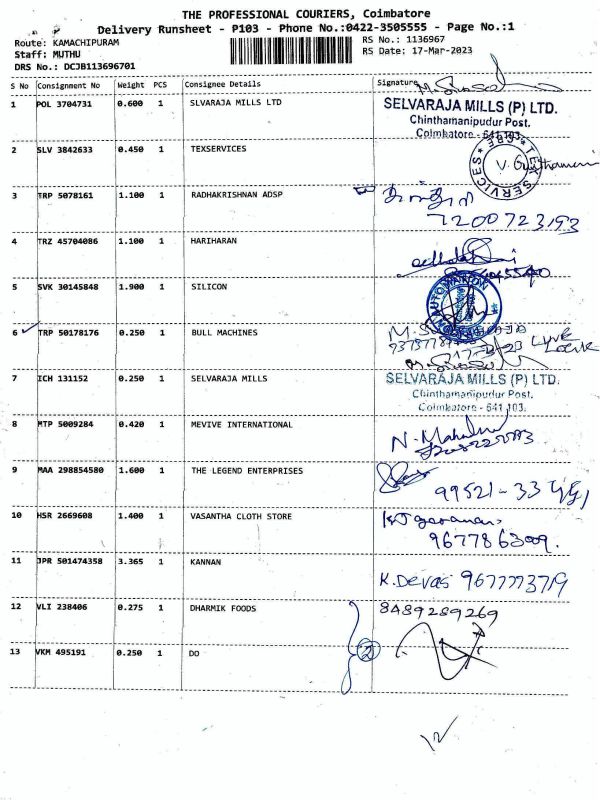 THE PROFESSIONAL COURIERS, Coimbatore
Delivery Runsheet - P103 - Phone No.:0422-3505555 - Page No.:1
Route: KAMACHIPURAM RS No.: 1136967
Staff: MUTHU RS Date: 17-Mar-2023
DRS No.: DCJB113696701
S No Consignment No Weight PCS Consignee Details Signature
1 POL 3704731 0.600 1 SLVARAJA MILLS LTD
SELVARAJA MILLS (P) LTD.
Chinthamanipudur Post,
Coimbatore - 641 103.
2 SLV 3842633 0.450 1 TEXSERVICES
TEX SERVICES CBE
3 TRP 5078161 1.100 1 RADHAKRISHNAN ADSP
7200723193
4 TRZ 45704086 1.100 1 HARIHARAN
5 SVK 30145848 1.900 1 SILICON
AUTOMATION
6 TRP 50178176 0.250 1 BULL MACHINES
7 ICH 131152 0.250 1 SELVARAJA MILLS
SELVARAJA MILLS (P) LTD.
Chinthamanipudur Post,
Coimbatore - 641 103.
8 MTP 5009284 0.420 1 MEVIVE INTERNATIONAL
9 MAA 298854580 1.600 1 THE LEGEND ENTERPRISES
99521-33
10 HSR 2669608 1.400 1 VASANTHA CLOTH STORE
9677863009.
11 JPR 501474358 3.365 1 KANNAN
K.Devas 9677773719
12 VLI 238406 0.275 1 DHARMIK FOODS 8489289269
13 VKM 495191 0.250 1 DO 2